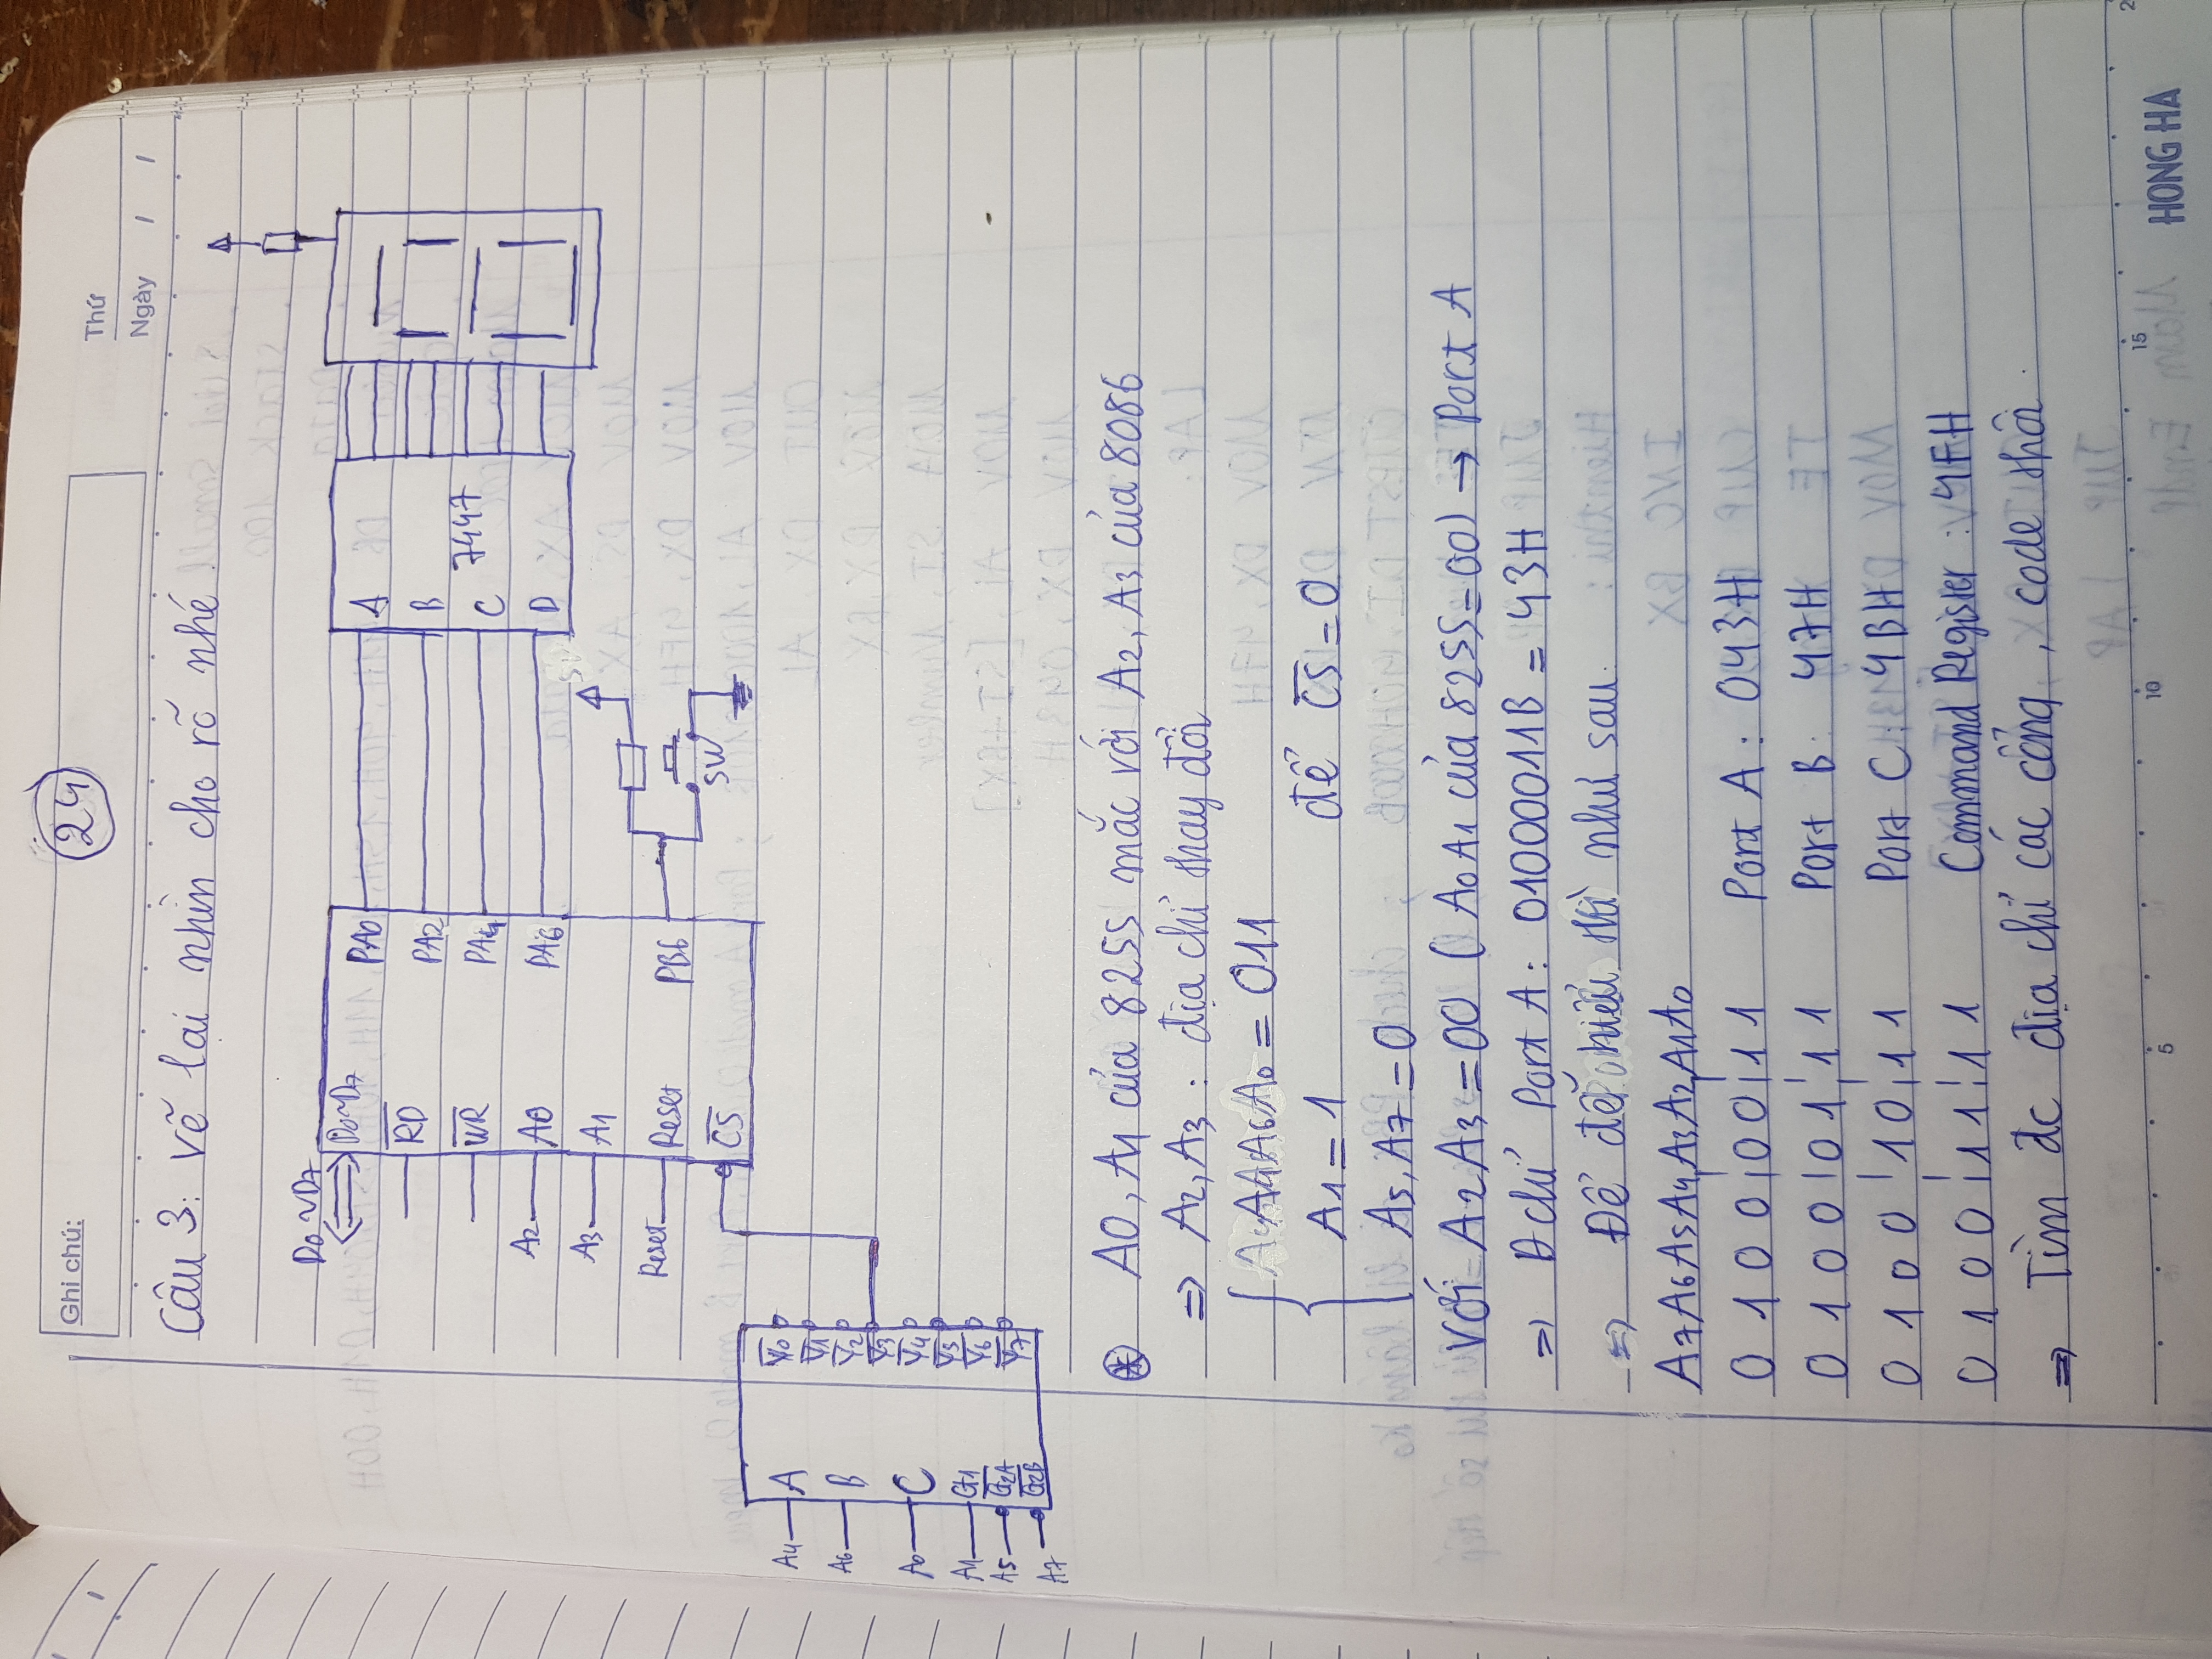 Ghi chú:
24
Thứ
Ngày / /
Câu 3: Vẽ lại nhìn cho rõ nhé.
D0~D7
D0~D7
RD
WR
A2
A0
A3
A1
Reset
Reset
CS
PA0
PA2
PA4
PA6
PB6
A
B
C
D
7447
5V
SW
A4
A
A6
B
A0
C
A1
G1
A5
G2A
A7
G2B
Y0
Y1
Y2
Y3
Y4
Y5
Y6
Y7
* A0, A1 của 8255 mắc với A2, A3 của 8086
=> A2, A3 : địa chỉ thay đổi
A4A6A0 = 011
A1 = 1 để CS = 0
A5, A7 = 0
Với A2A3 = 00 (A0A1 của 8255 = 00) → Port A
=> Đchỉ Port A: 01000011B = 43H
=> Để dễ hiểu thì như sau.
A7A6A5A4A3A2A1A0
0 1 0 0 0 0 1 1 Port A: 043H
0 1 0 0 0 1 1 1 Port B: 47H
0 1 0 0 1 0 1 1 Port C: 4BH
0 1 0 0 1 1 1 1 Command Register: 4FH
=> Tìm đc địa chỉ các cổng, code thôi.
5
10
15
HONG HA